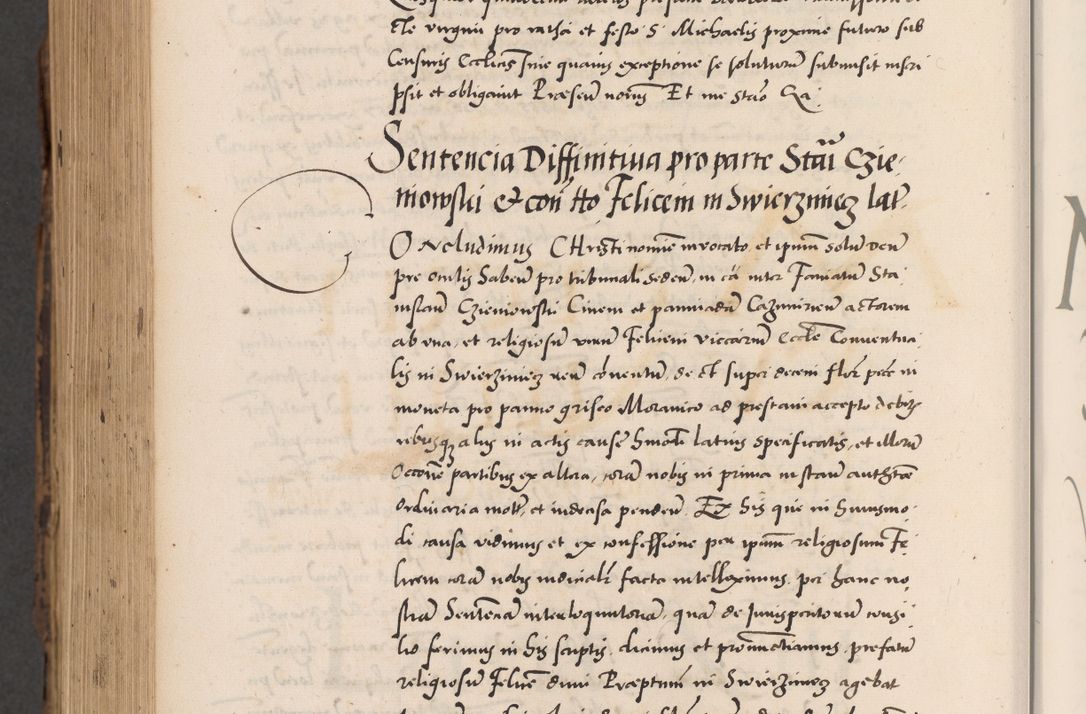 cte virginū pro rathā et festo S Michaelis proxime futuro sub
Censuris Ecclicis sine quauis exceptione se soluturū submisit inscri
psit et obligauit Præsēn norūs Et me Stāo Qa
Sentencia Diffinitiua pro parte Staū Czie
niowski et con tto Felicem in Swierzinecz lat
Concludimus Christi nomine inuocato et ipsum solū deū
pre oculis habeñ pro tribunali sedeñ, in cā inter Famatū Sta
nislaū Czieniowski Ciuem et pannirādū Cazimireñ actorem
ab vna, et religiosū virū Felicem viccariū Eccle Conuentua
lis in Swierzinecz reū cōuentū, de et super decem flor pecc in
moneta pro panno griseo Morauico ad prestañ accepto debit
rebusq alys in actis cause hmōi latius specificatis, et illorū
Occone partibus ex altera, corā nobis in prima instañ authtāe
Ordinaria mott, et indecisa pendeñ. Ex his que in huiusmo
di causa vidimus et ex confessione per ipsum religiosum Fe
licem corā nobis iudicialr facta intelleximus, per hanc no
strā Sentenciā interloqutoriā, quā de Iurisperitorum consi
lio ferimus in his scriptis, dicimus et pronuncciamus, prefatū
religiosū Felicē dum Præeptum in Swierzinecz agebat